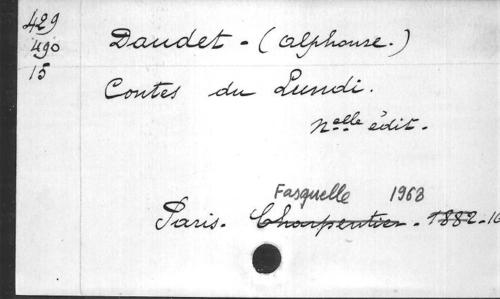 429
490
15
Daudet - (Alphonse.)
Contes du Lundi.
Nelle édit.
Fasquelle 1963
Paris. Charpentier - 1882-16